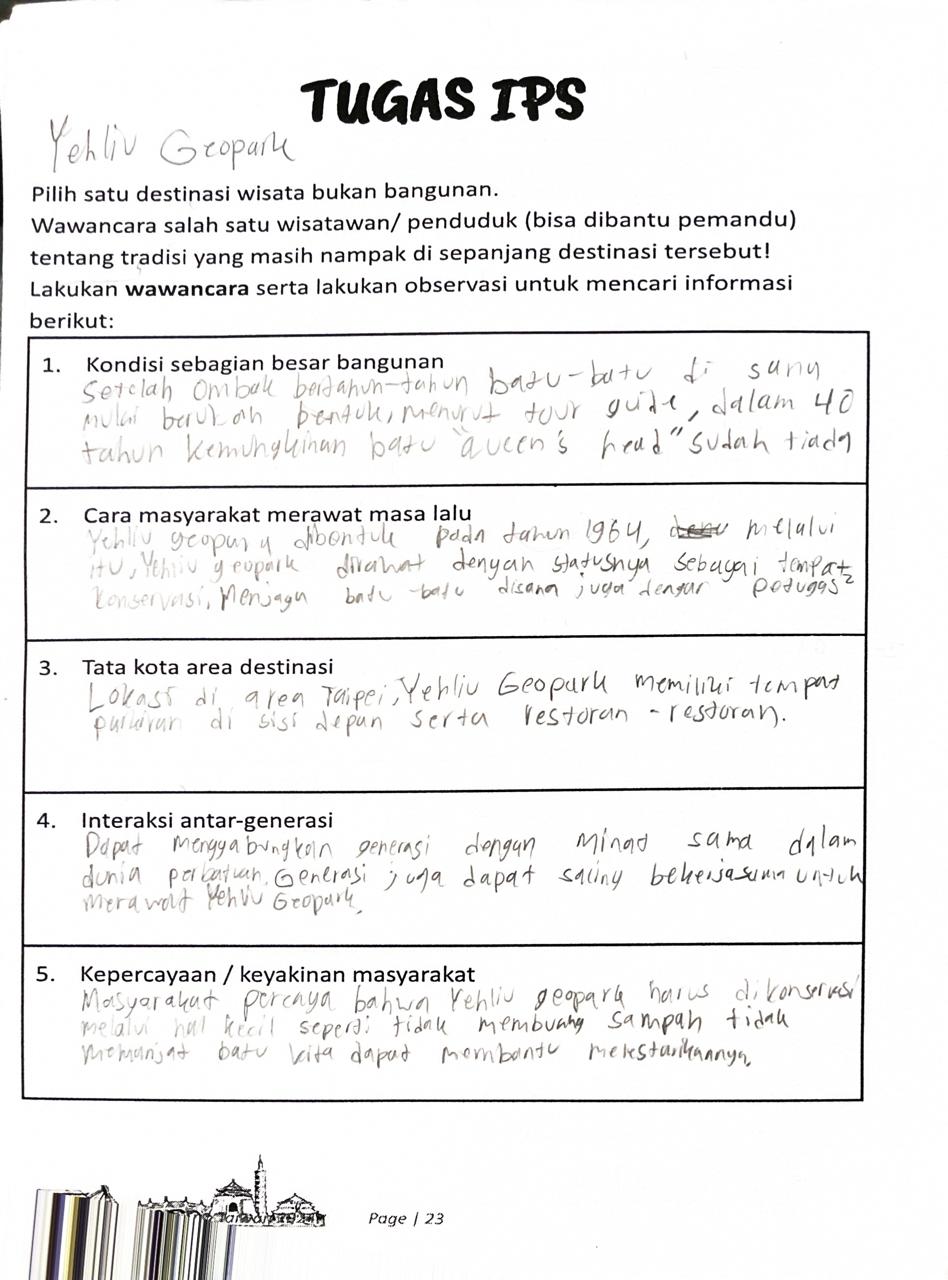 TUGAS IPS
Yehliu Geopark
Pilih satu destinasi wisata bukan bangunan.
Wawancara salah satu wisatawan/ penduduk (bisa dibantu pemandu)
tentang tradisi yang masih nampak di sepanjang destinasi tersebut!
Lakukan wawancara serta lakukan observasi untuk mencari informasi
berikut:
1. Kondisi sebagian besar bangunan
Setelah Ombak bertahun-tahun batu-batu di sana
mulai berubah bentuk, menurut tour guide, dalam 40
tahun kemungkinan batu "Queen's head" sudah tiada
2. Cara masyarakat merawat masa lalu
Yehliu geopark dibentuk pada tahun 1964, melalui
itu, Yehliu geopark dirawat dengan statusnya sebagai tempat
konservasi, Menjaga batu-batu disana juga dengan petugas2
3. Tata kota area destinasi
Lokasi di area Taipei, Yehliu Geopark memiliki tempat
parkiran di sisi depan serta restoran-restoran.
4. Interaksi antar-generasi
Dapat menggabungkan generasi dengan minat sama dalam
dunia perbatuan. Generasi juga dapat saling bekerjasama untuk
merawat Yehliu Geopark.
5. Kepercayaan / keyakinan masyarakat
Masyarakat percaya bahwa Yehliu geopark harus dikonservasi
melalui hal kecil seperti tidak membuang sampah tidak
memanjat batu kita dapat membantu melestarikannya.
Page | 23